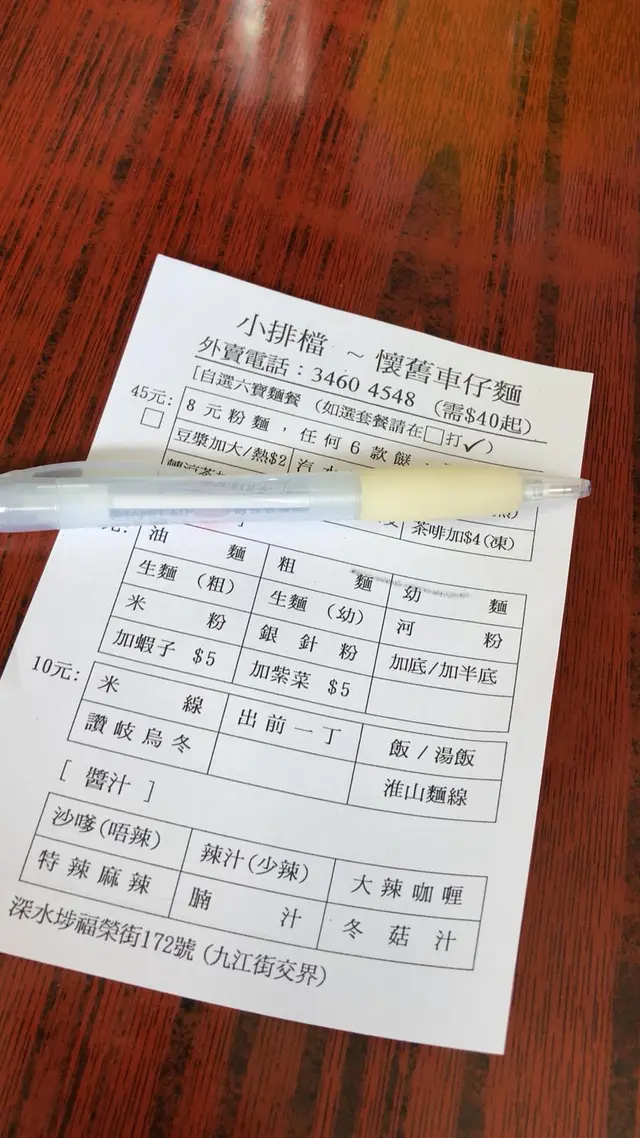 小排檔 ~ 懷舊車仔麵
外賣電話：3460 4548 (需$40起)
[自選六寶麵餐 (如選套餐請在□打✓)
45元: 8元粉麵，任何6款餸
□ 豆漿加大/熱$2 汽水
茶啡加$4(凍)
油麵 粗麵 幼麵
生麵（粗） 生麵（幼） 河粉
米粉 銀針粉 加底/加半底
加蝦子 $5 加紫菜 $5
10元: 米線 出前一丁 飯/湯飯
讚岐烏冬 淮山麵線
[ 醬汁 ]
沙嗲(唔辣) 辣汁(少辣) 大辣咖喱
特辣麻辣 腩汁 冬菇汁
深水埗福榮街172號 (九江街交界)